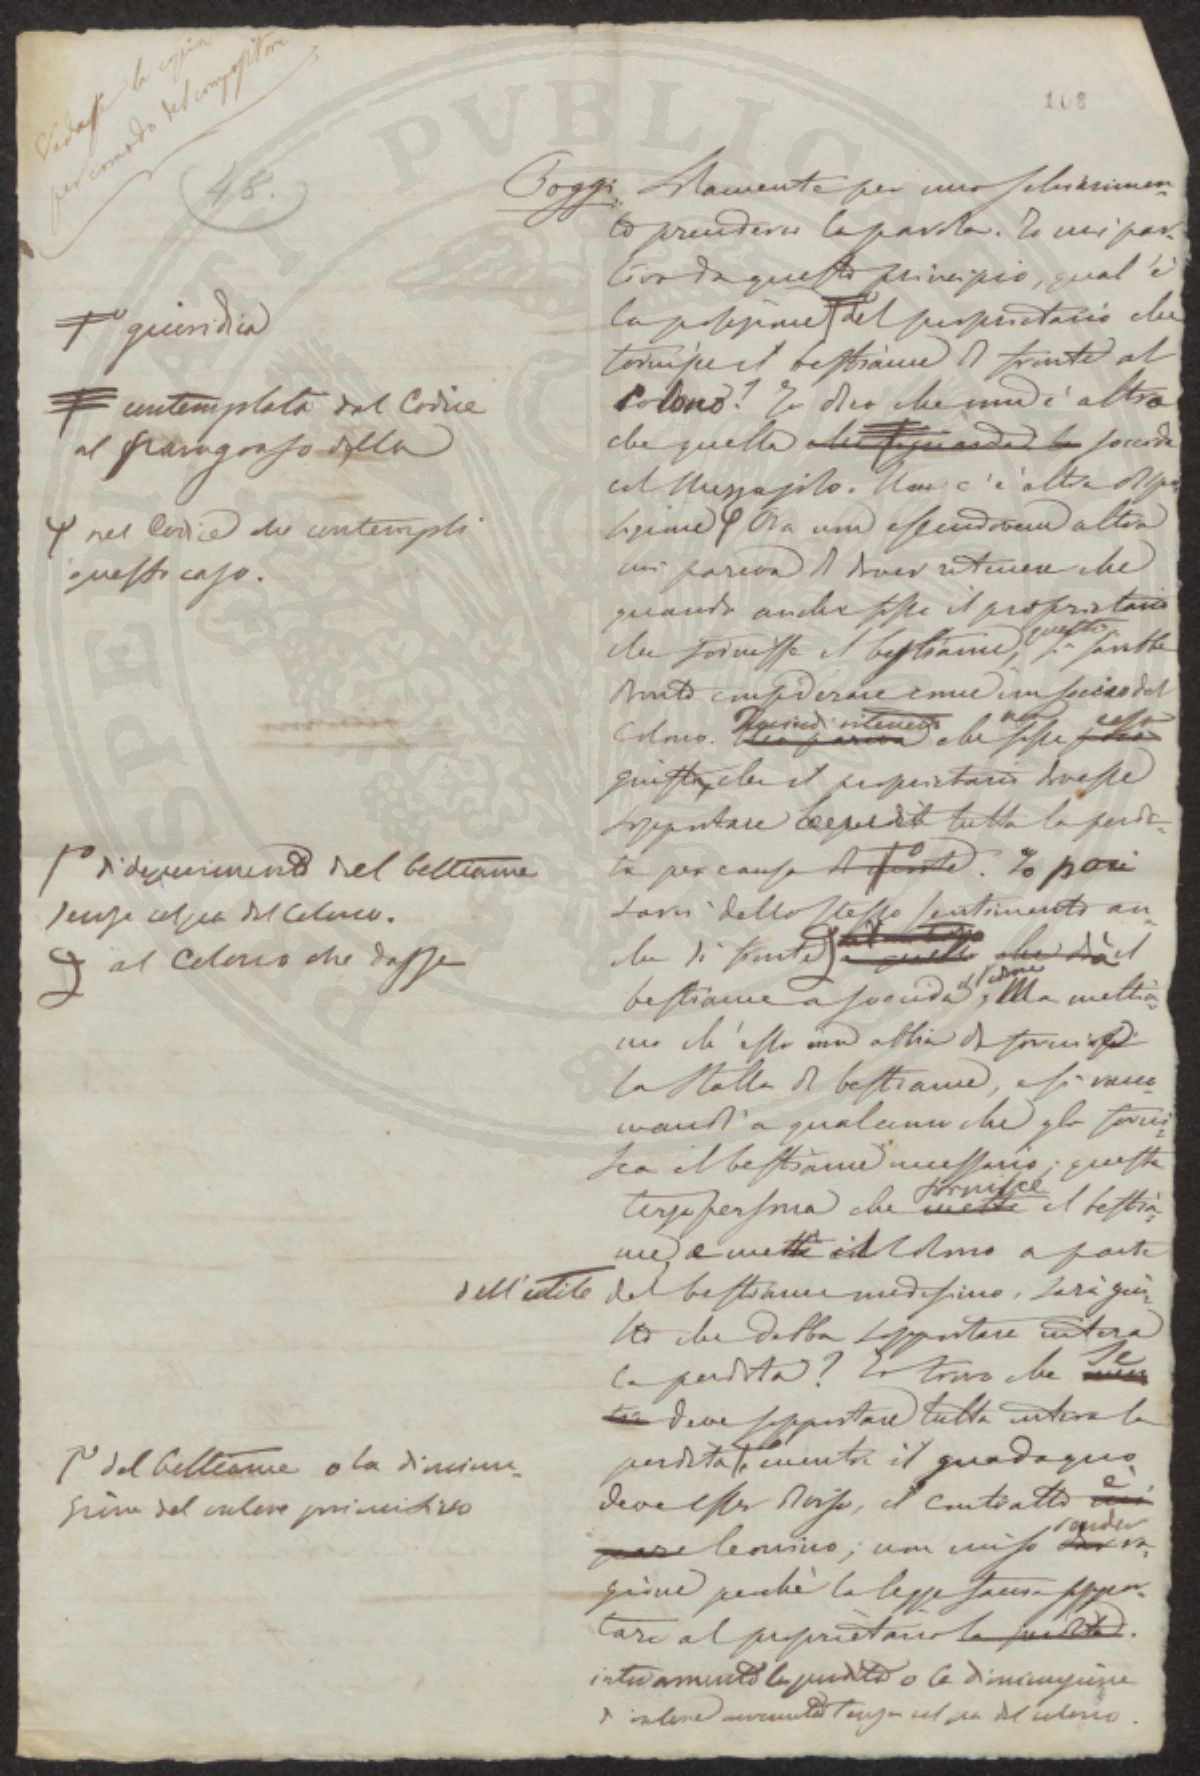 Vedasse la copia
per comodo del compositore
108
48.
Poggi. Solamente per uno schiarimen-
to prenderei la parola. Io mi par-
tivo da questo principio, qual'è
la posizione del proprietario che
fornisce il bestiame di fronte al
Colono? Io dico che non è altra
che quella che riguarda la soccida
col Mezzajolo. Non c'è altra dispo-
sizione φ Ora non essendovene altra
mi pareva di dover ritenere che
quando anche fosse il proprietario
che fornisse il bestiame, questi si sarebbe
dovuto considerare come un socio del
Colono. Quindi ritenevo che non fosse
giusto, che il proprietario dovesse
sopportare tutta la perdi-
ta per causa di. Io poi
sarei dello stesso sentimento an-
che di fronte a quello che dà il
bestiame a soccida; Ma mettia-
mo ch'esso non abbia da fornire
la stalla di bestiame, e si racco-
mandi a qualcuno che glo forni-
sca il bestiame necessario; questa
terza persona che mette fornisce il bestia-
me e mette il Colono a parte
dell'utile del bestiame medesimo, sarà giu-
sto che debba sopportare intera
la perdita? Io trovo che se
deve sopportare tutta intera la
perdita, mentre il guadagno
deve esser diviso, il contratto è
pare leonino; non miso render ra-
gione perchè la legge faccia soppor-
tare al proprietario la perdita.
interamente la perdita o la diminuzione
di valore avvenuta senza colpa del colono.
giuridica
contemplata dal Codice
al paragrafo della
φ nel Codice che contempli
questo caso.
di deperimento del bestiame
senza colpa del Colono.
al Colono che dasse
del bestiame o la diminu-
zione del valore primitivo